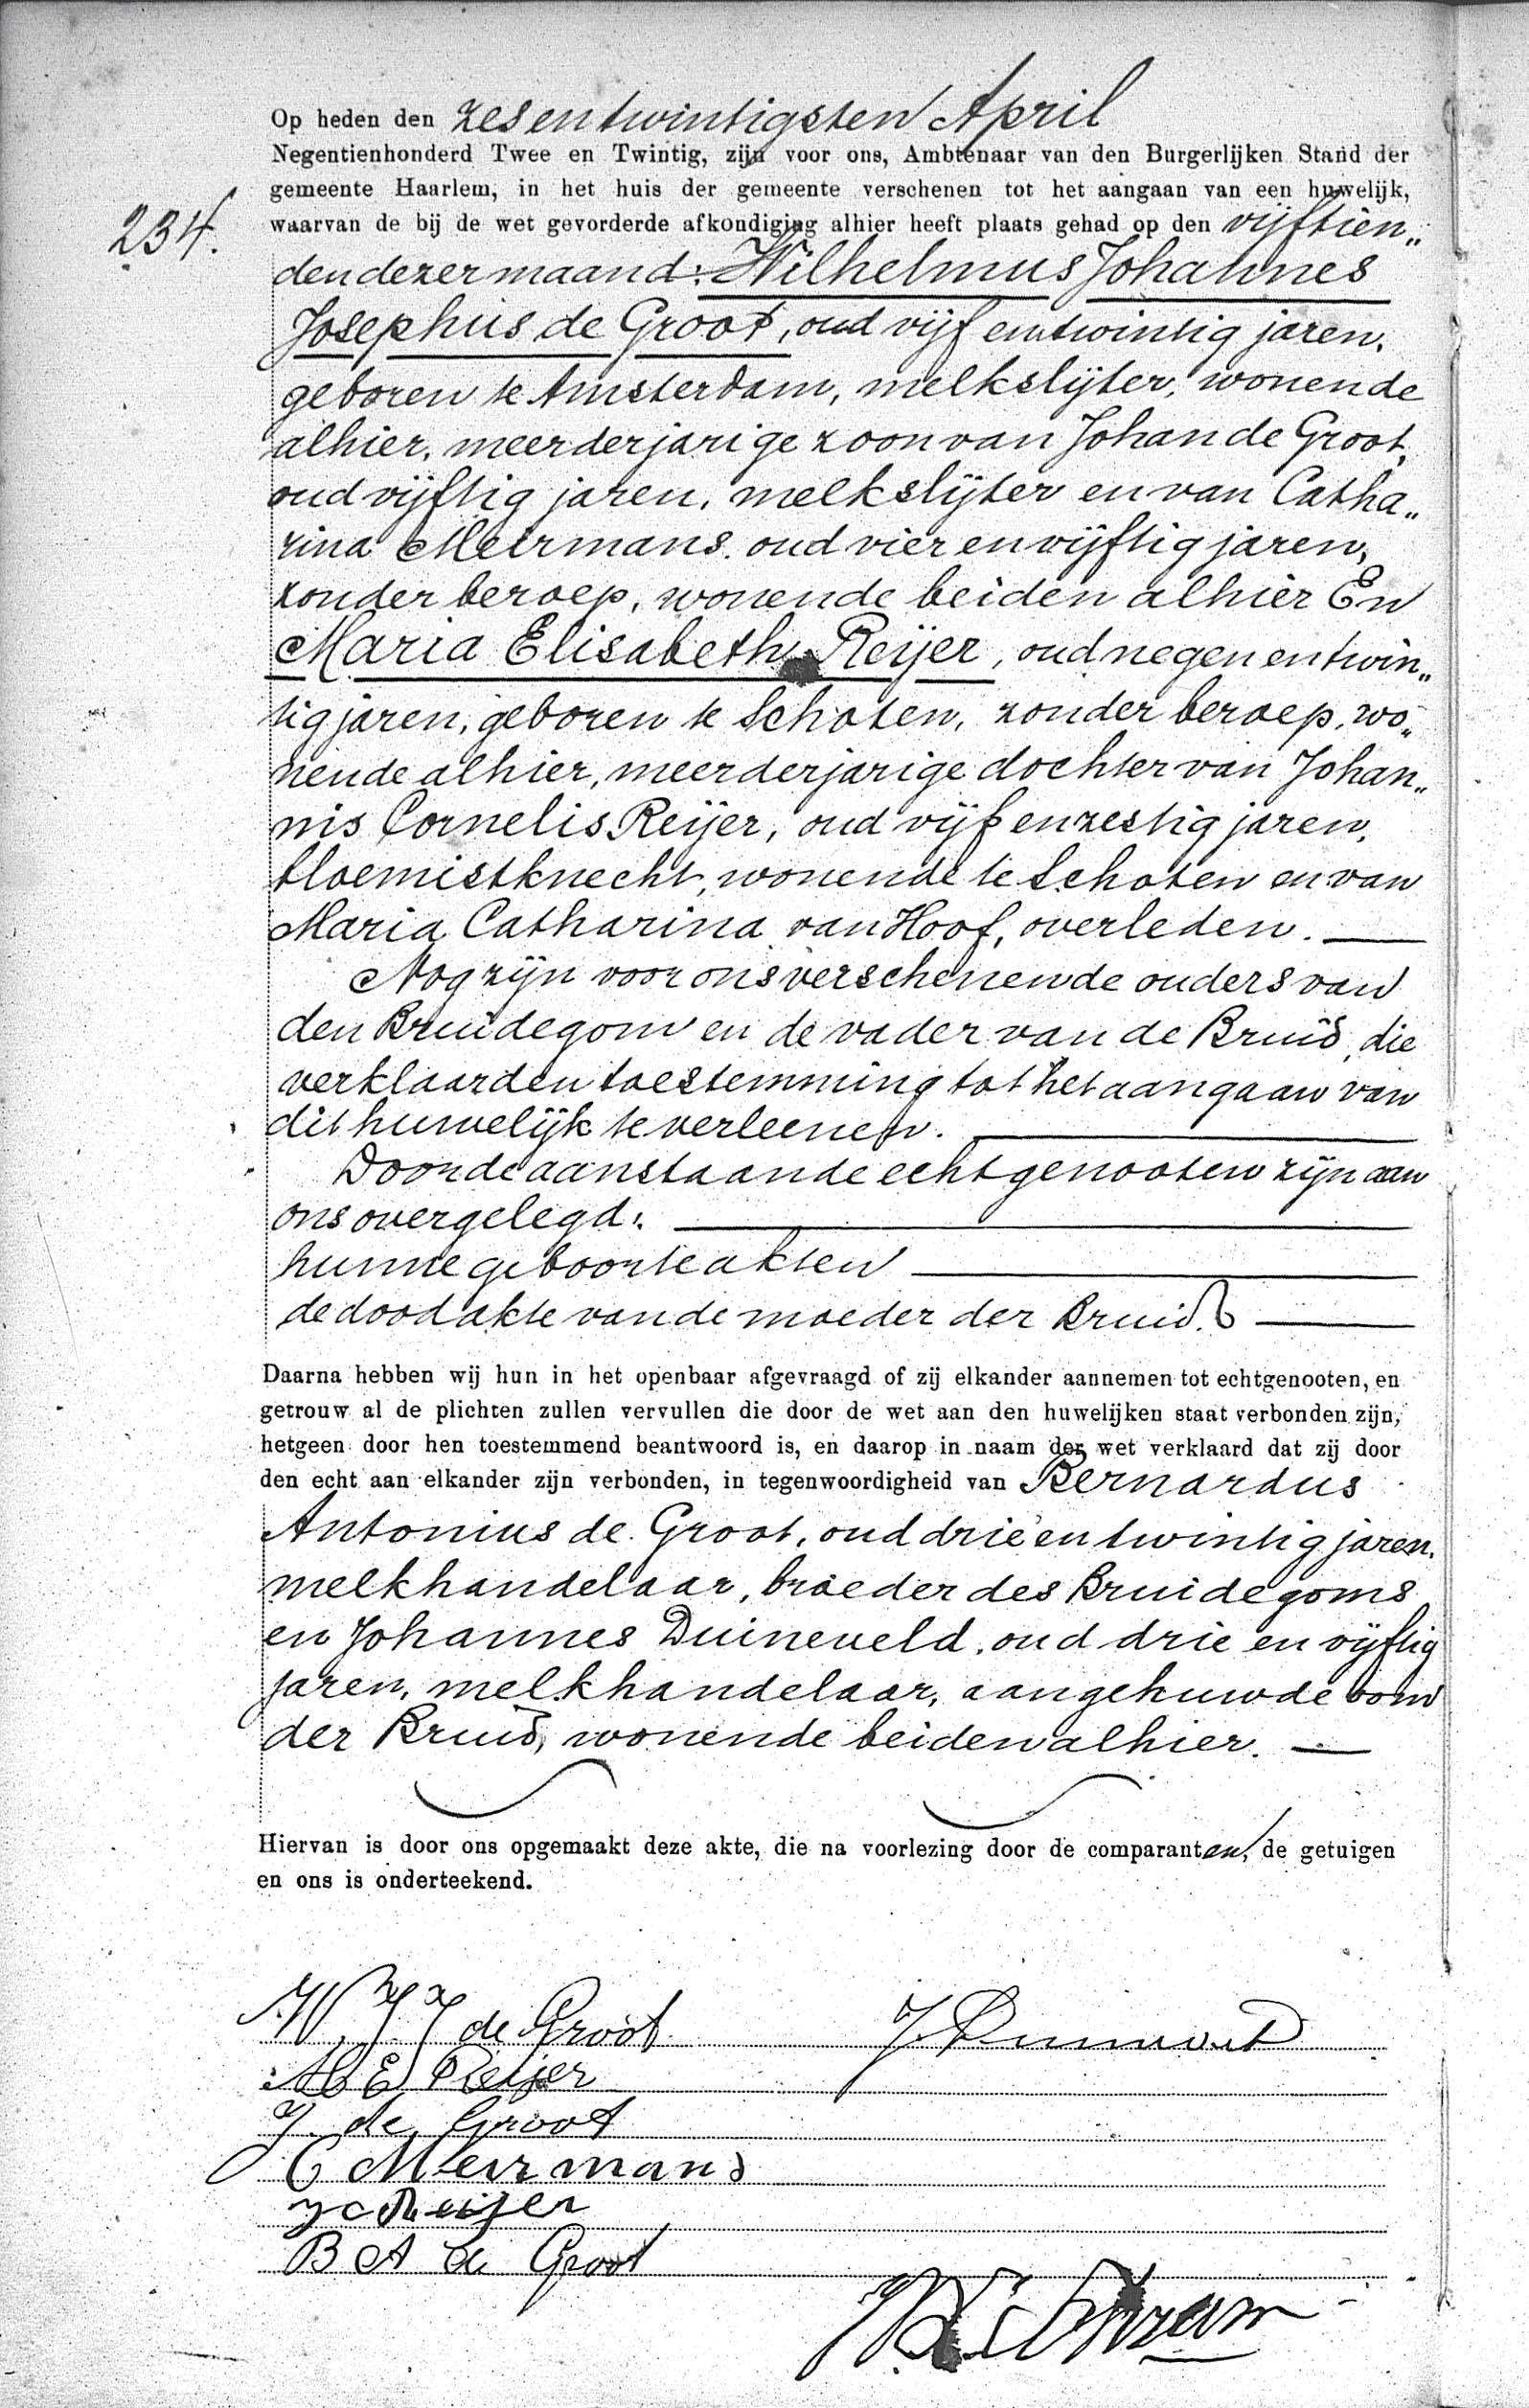 Op heden den zesentwintigsten April
Negentienhonderd Twee en Twintig, zijn voor ons, Ambtenaar van den Burgerlijken Stand der
gemeente Haarlem, in het huis der gemeente verschenen tot het aangaan van een huwelijk,
234. waarvan de bij de wet gevorderde afkondiging alhier heeft plaats gehad op den vijftien„
den dezer maand: Wilhelmus Johannes
Josephus de Groot, oud vijf en twintig jaren,
geboren te Amsterdam, melkslijter, wonende
alhier, meerderjarige zoon van Johan de Groot,
oud vijftig jaren, melkslijter en van Catha„
rina Meirmans, oud vier en vijftig jaren,
zonder beroep, wonende beiden alhier En
Maria Elisabeth Reijer, oud negen en twin„
tig jaren, geboren te Schoten, zonder beroep, wo„
nende alhier, meerderjarige dochter van Johan„
nis Cornelis Reijer, oud vijf en zestig jaren,
bloemistknecht, wonende te Schoten en van
Maria Catharina van Hoof, overleden.
Nog zijn voor ons verschenen de ouders van
den Bruidegom en de vader van de Bruid, die
verklaarden toestemming tot het aangaan van
dit huwelijk te verleenen.
Door de aanstaande echtgenooten zijn aan
ons overgelegd:
hunne geboorteakten
de doodakte van de moeder der Bruid.
Daarna hebben wij hun in het openbaar afgevraagd of zij elkander aannemen tot echtgenooten, en
getrouw al de plichten zullen vervullen die door de wet aan den huwelijken staat verbonden zijn,
hetgeen door hen toestemmend beantwoord is, en daarop in naam der wet verklaard dat zij door
den echt aan elkander zijn verbonden, in tegenwoordigheid van Bernardus
Antonius de Groot, oud drie en twintig jaren,
melkhandelaar, broeder des Bruidegoms
en Johannes Duineveld, oud drie en vijftig
jaren, melkhandelaar, aangehuwde oom
der Bruid, wonende beiden alhier.
Hiervan is door ons opgemaakt deze akte, die na voorlezing door de comparanten, de getuigen
en ons is onderteekend.
W. J. J de Groot
M E Reijer
J. de Groot
C Meirmans
J C Reijer
B A de Groot